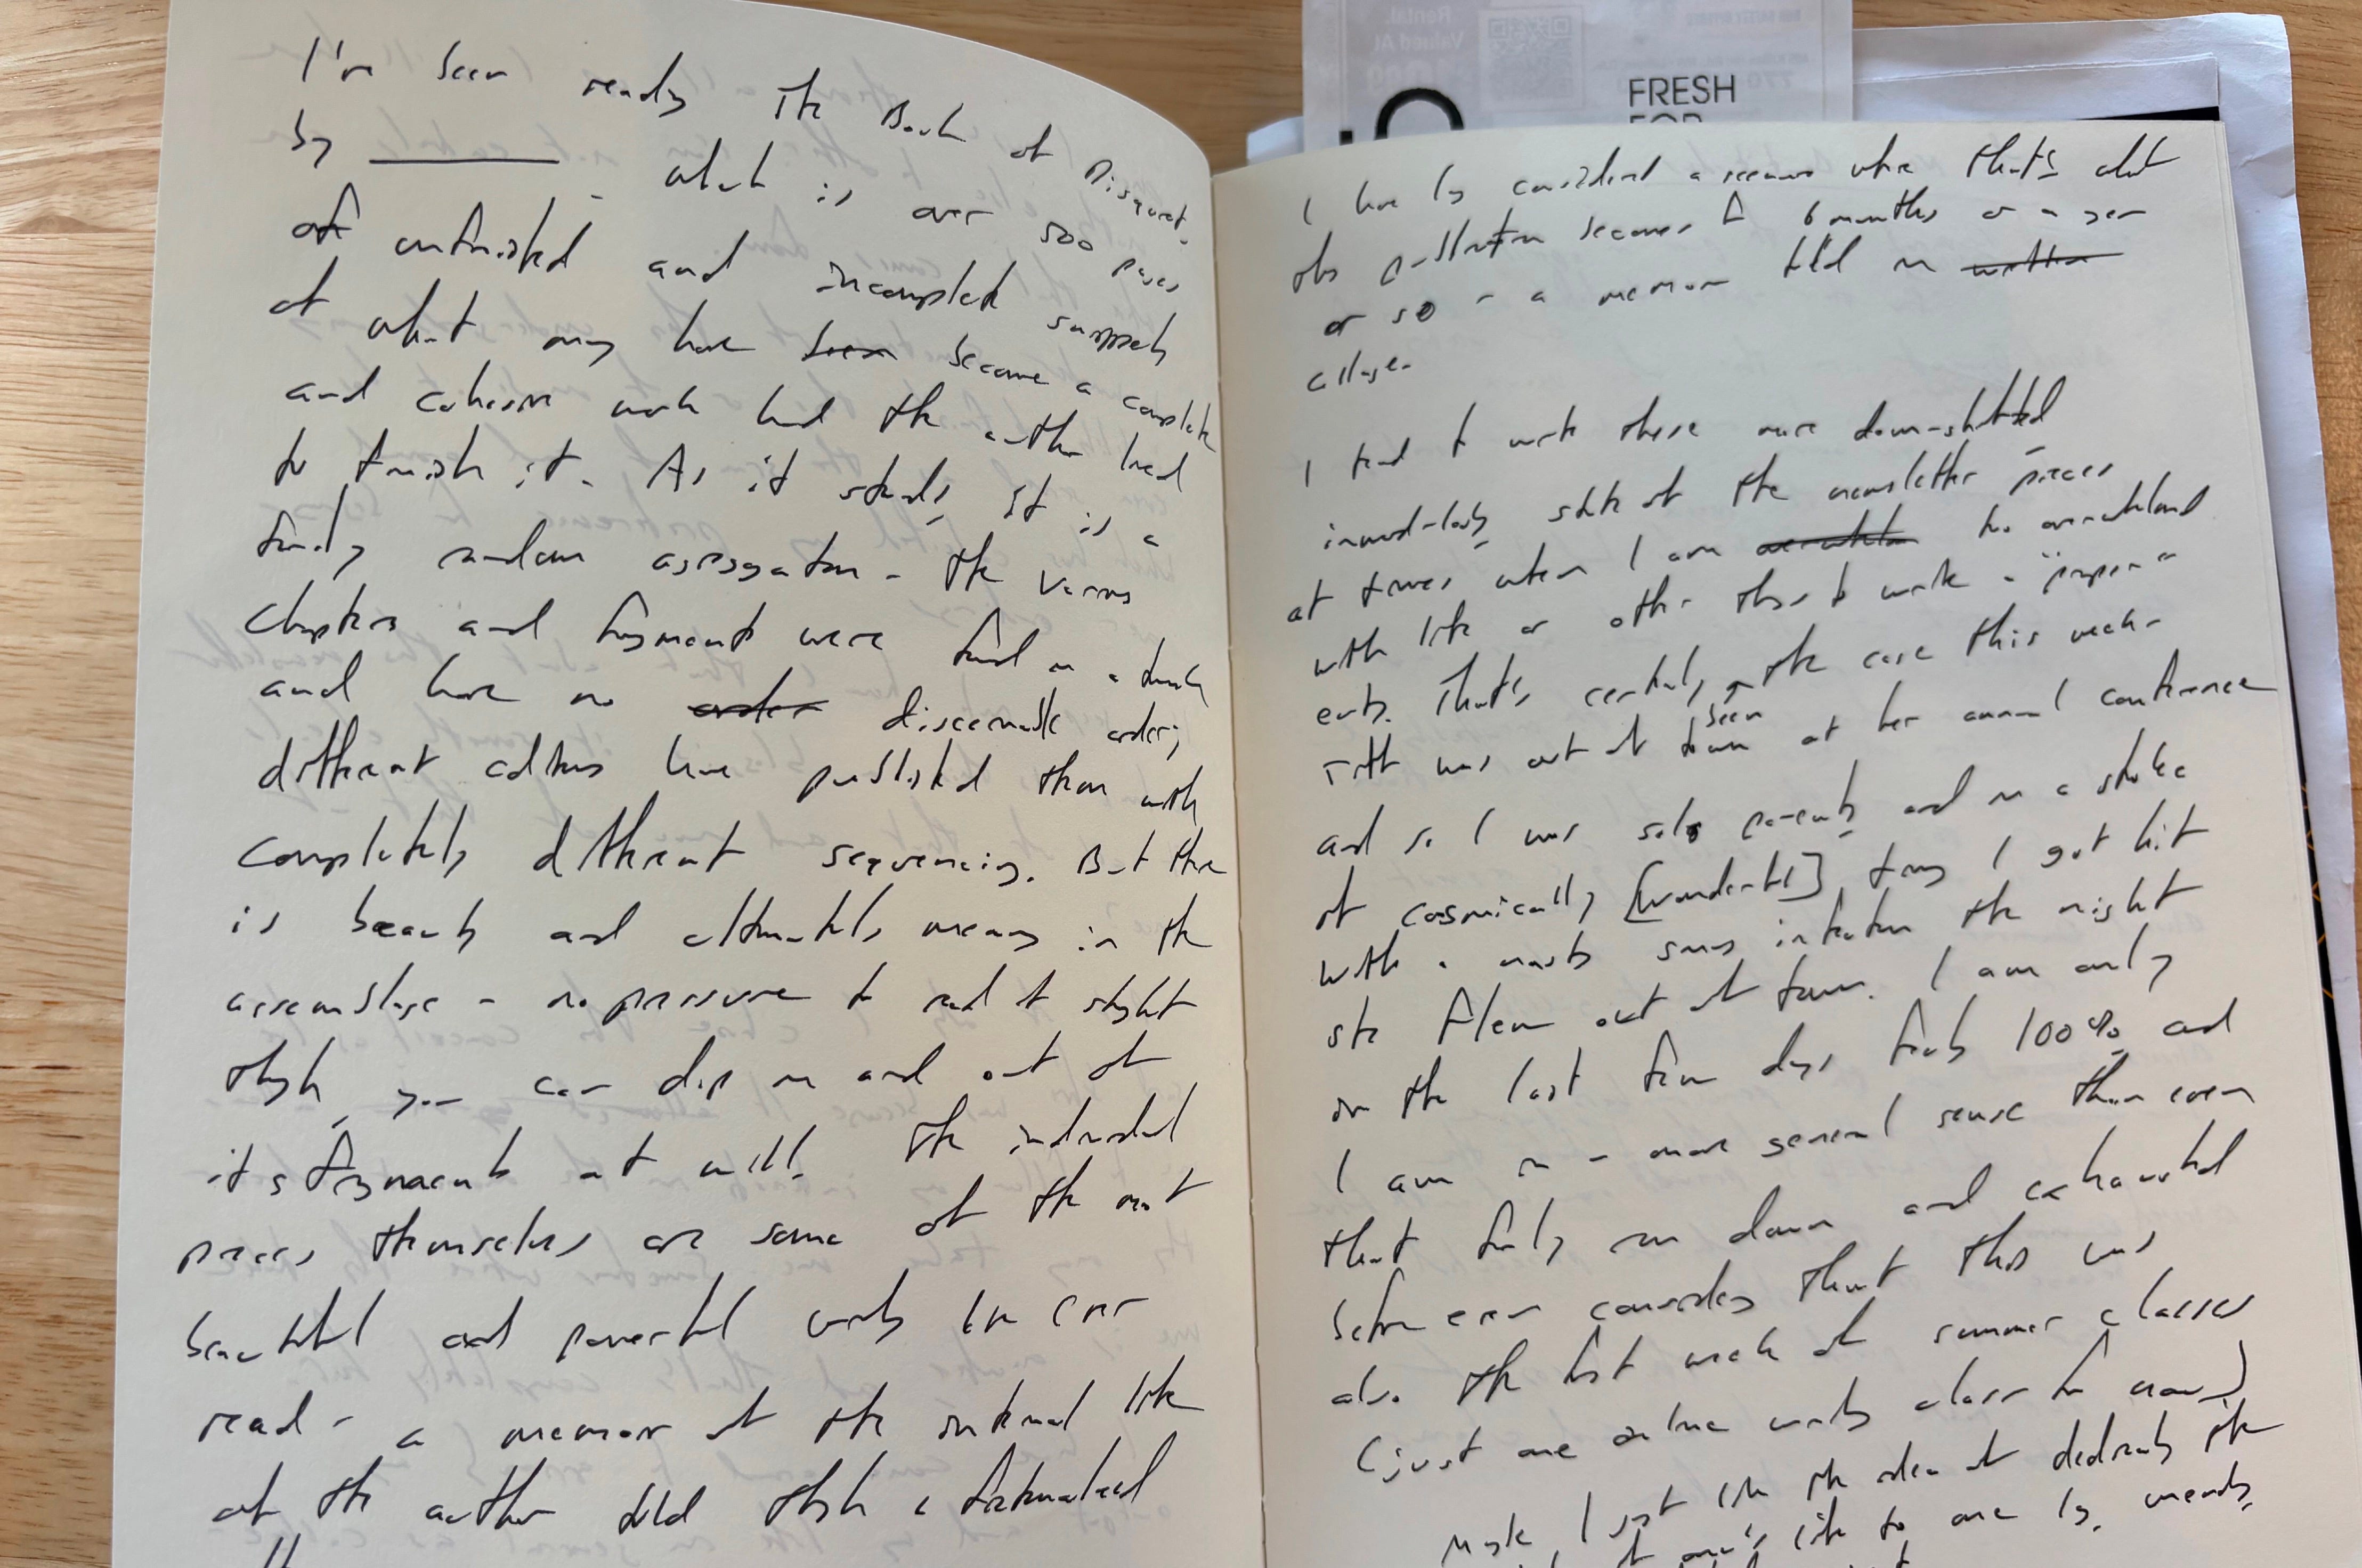 I've been reading The Book of Disquiet
by ________ - which is over 500 pages
of unfinished and incomplete snippets
of what may have been become a complete
and cohesive work had the author lived
to finish it. As it stands, it is a
fairly random aggregation - the various
chapters and fragments were found in a trunk
and have no order discernable order;
different editors have published them with
completely different sequencing. But there
is beauty and ultimately meaning in the
assemblage - no pressure to read it straight
through, you can dip in and out of
its fragments at will. The individual
pieces themselves are some of the most
beautiful and powerful writing I've ever
read - a memoir of the internal life
of the author told through a fictionalized
FRESH
FOR
I have long considered a memoir where that's what
this publication becomes for 6 months or a year
or so - a memoir told in written
collage.
I tend to write these more down-shifted
immediately state of the newsletter pieces
at times when I am overwhelm too overwhelmed
with life or other things to write a "proper"
entry. That's certainly the case this week -
was out of town been at her annual conference
and so I was solo parenting and in a stroke
of cosmically [wonderful] timing I got hit
with a nasty sinus infection the night
she flew out of town. I am only
in the last few days finally 100% and
I am in a more general sense than even
that fairly run down and exhausted
before even considering that this was
also the first week of summer classes
(just one online writing class for now)
Maybe I just like the idea of dedicating the
life to one long, meandering,